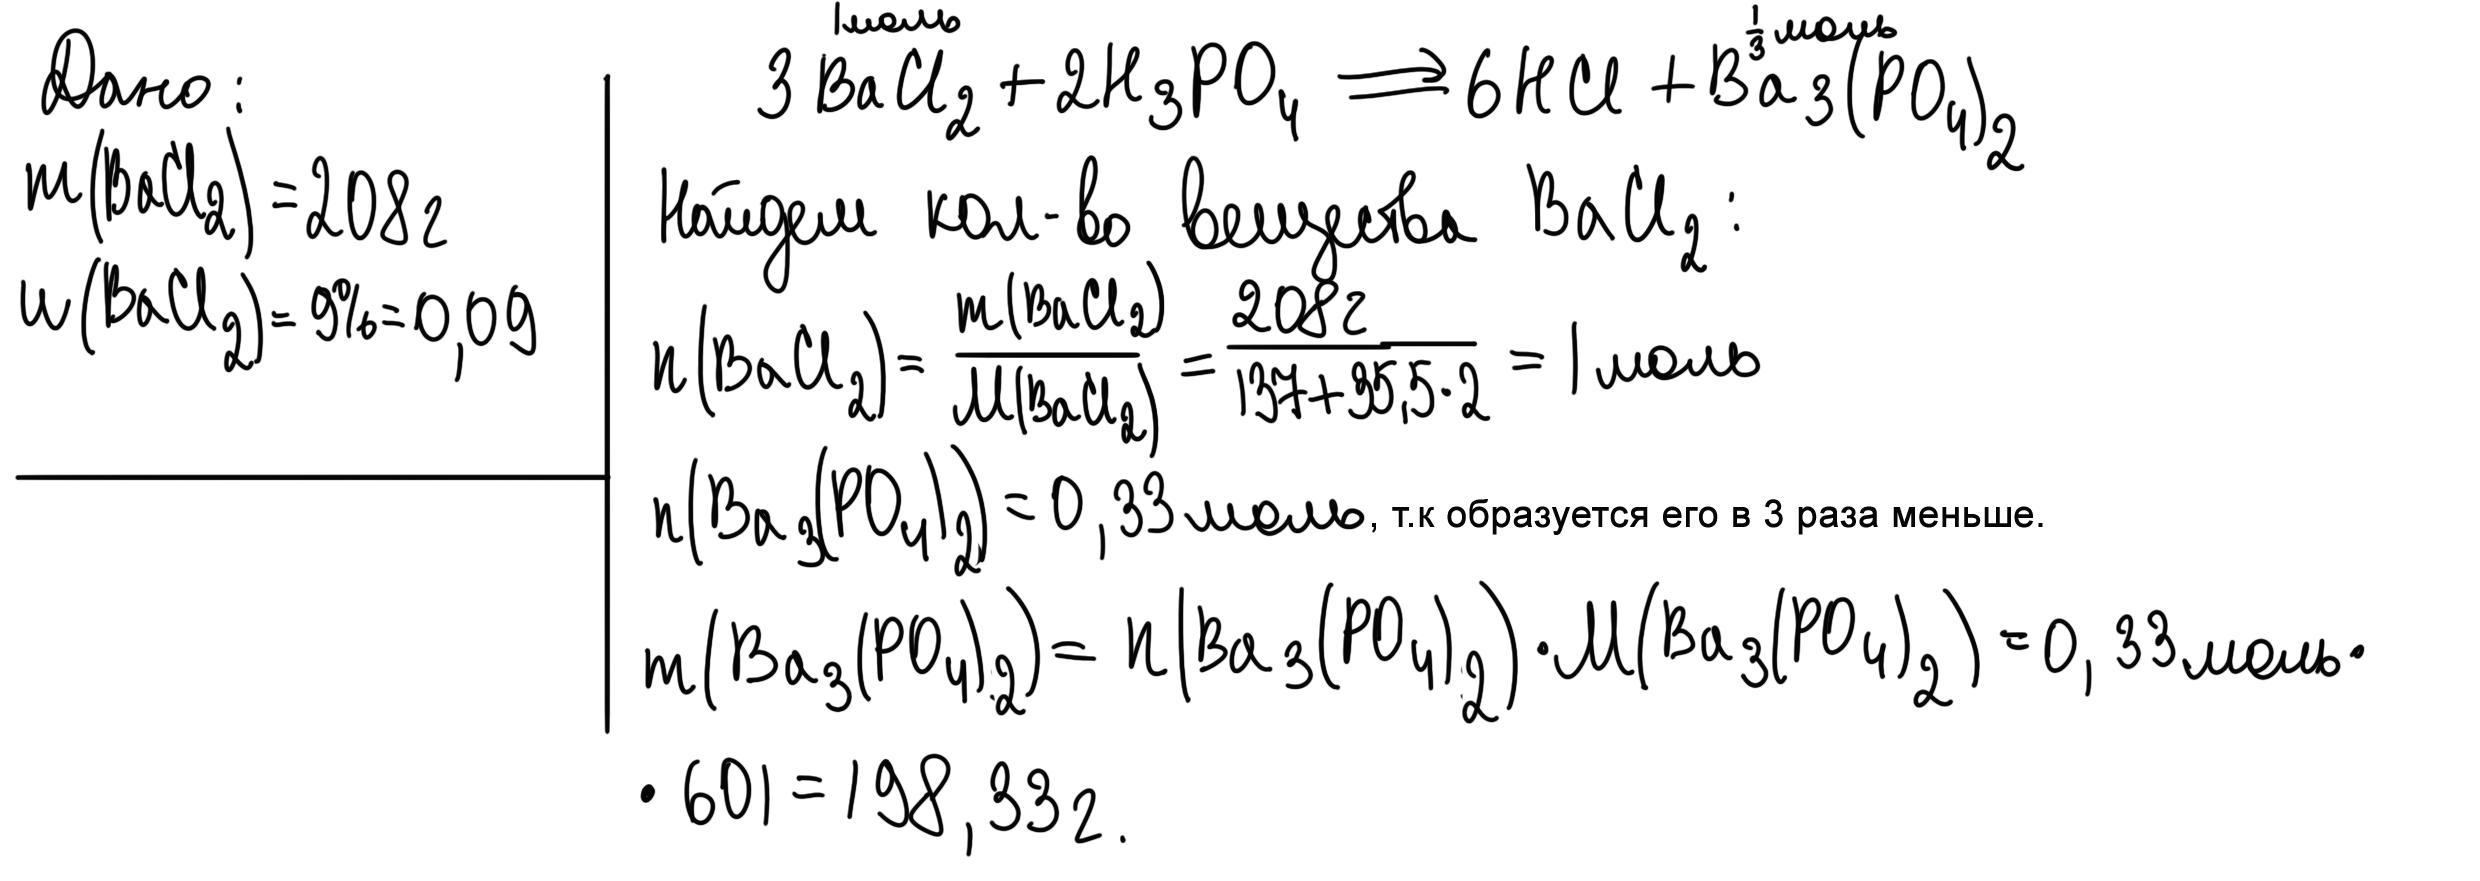 Дано:
m(BaCl₂)=208г
w(BaCl₂)=9%=0,09
1моль
1/3 моль
3BaCl₂+2H₃PO₄ ⟹ 6HCl+Ba₃(PO₄)₂
Найдем кол-во вещества BaCl₂:
n(BaCl₂)= m(BaCl₂)/M(BaCl₂) = 208г/137+35,5·2 = 1моль
n(Ba₃(PO₄)₂)=0,33моль, т.к образуется его в 3 раза меньше.
m(Ba₃(PO₄)₂)= n(Ba₃(PO₄)₂)·M(Ba₃(PO₄)₂)=0,33моль·
·601=198,33г.